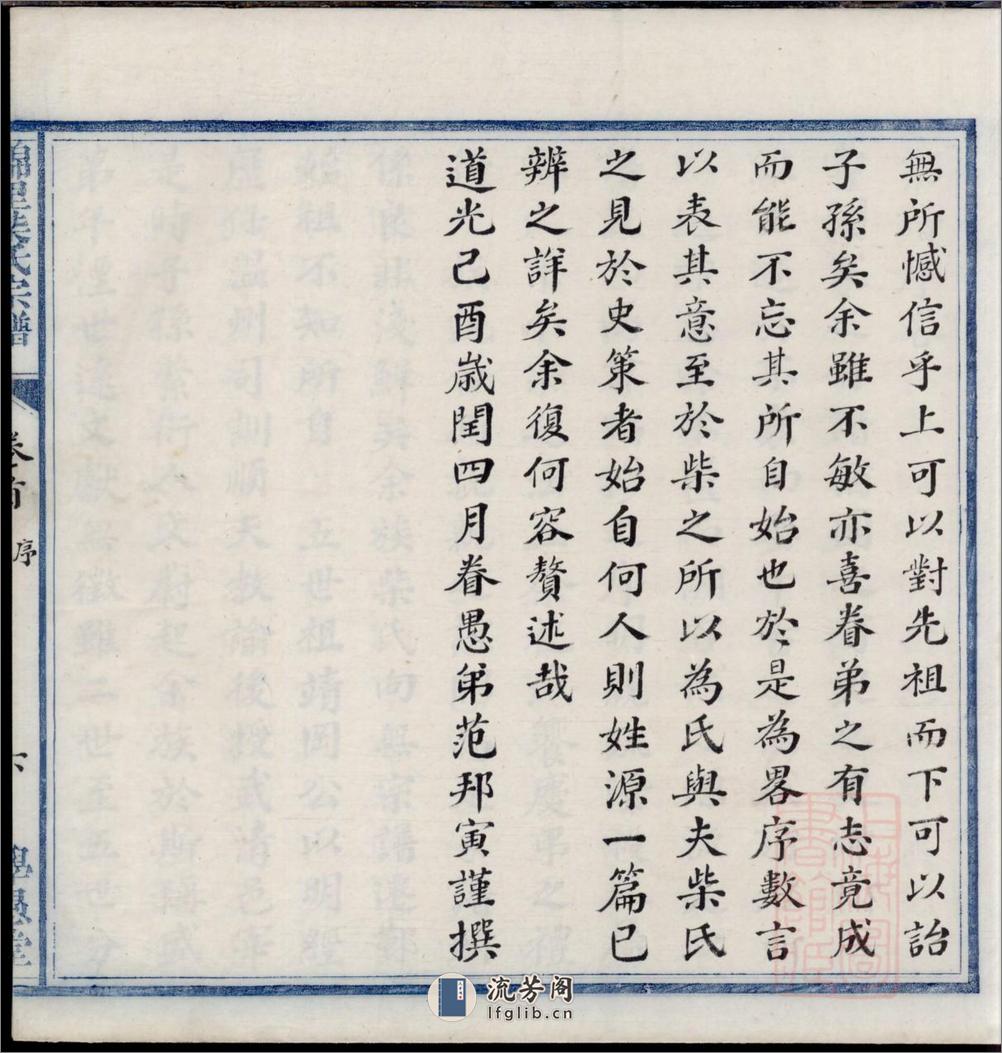 無所憾信乎上可以對先祖而下可以詒
子孫矣余雖不敏亦喜眷弟之有志竟成
而能不忘其所自始也於是為畧序數言
以表其意至於柴之所以為氏與夫柴氏
之見於史策者始自何人則姓源一篇已
辨之詳矣余復何容贅述哉
道光己酉歲閏四月眷愚弟范邦寅謹撰
氏宗譜
卷首
序
流芳阁
lfglib.cn